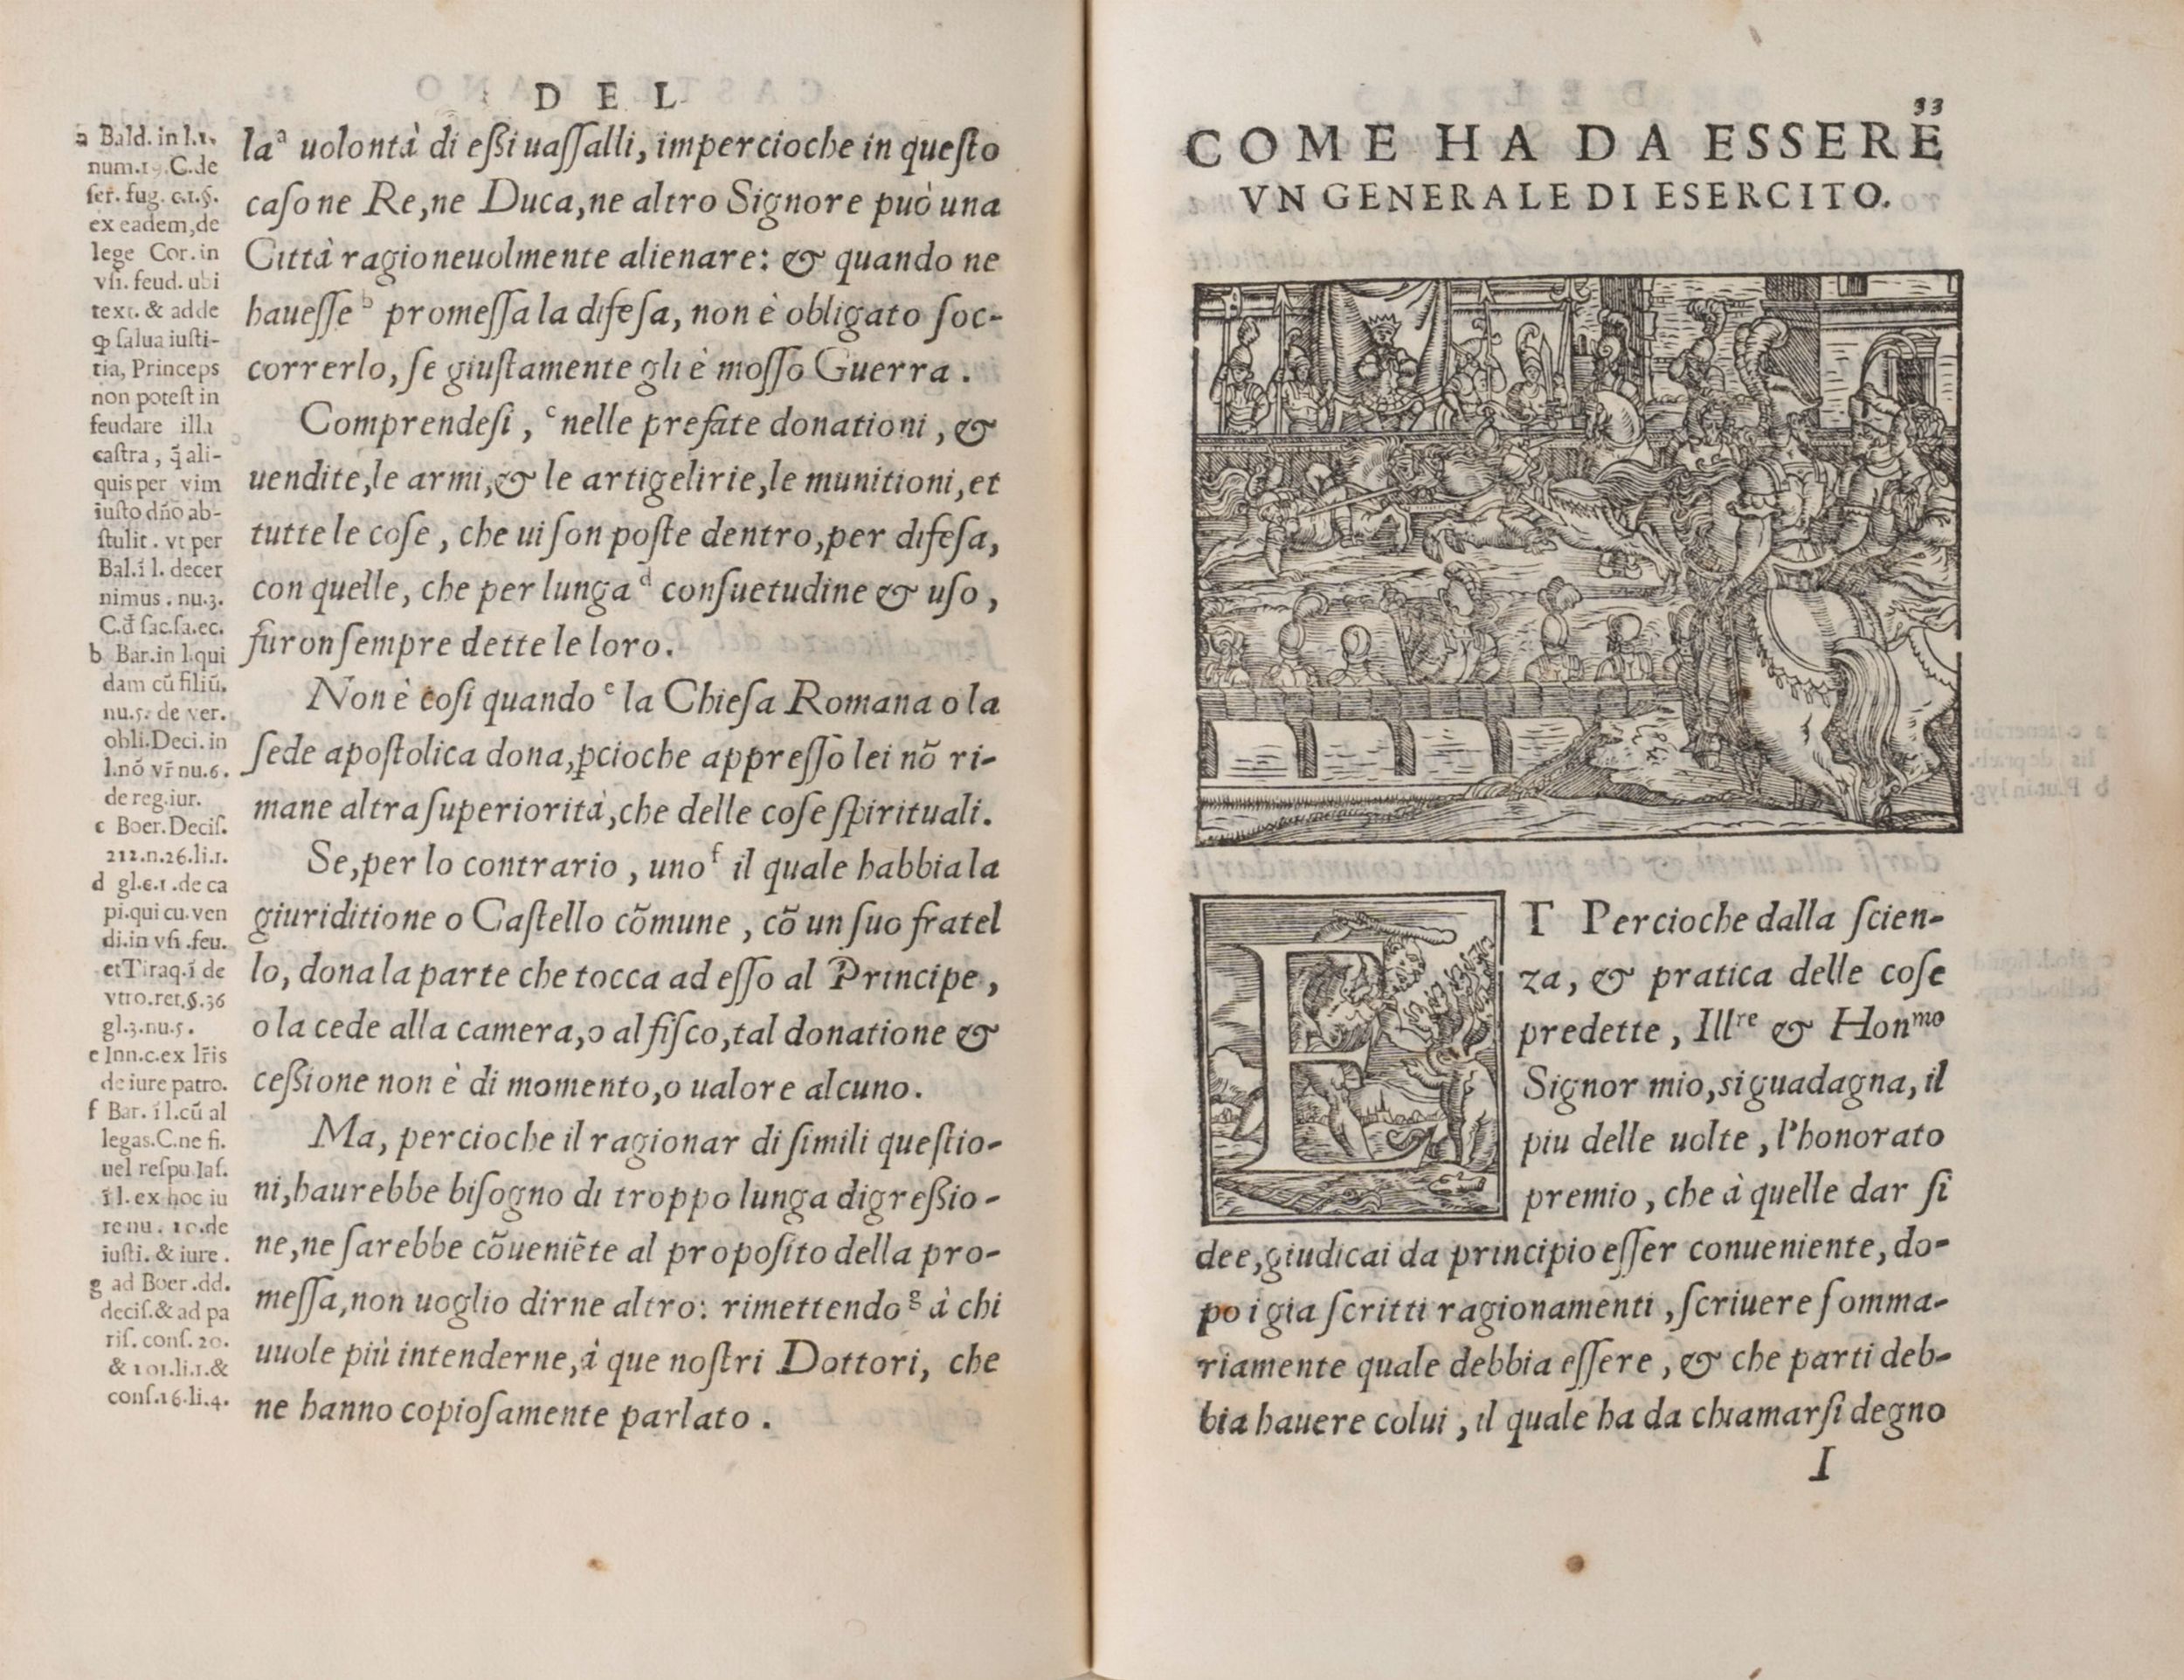 DEL
a Bald. in l.1.
num.19.C.de
ser. fug. c.1.§.
ex eadem,de
lege Cor.in
vsi. feud. ubi
text. & adde
ꝙ salua iusti-
tia, Princeps
non potest in
feudare illa
castra, q̃ ali-
quis per vim
iusto dño ab-
stulit. vt per
Bal.ĩ l. decer
nimus. nu.3.
C.đ sac.sa.ec.
b Bar.in l.qui
dam cũ filiũ.
nu.5. de ver.
obli.Deci. in
l.nõ vr̃ nu.6.
de reg.iur.
c Boer.Decis.
212.n.26.li.1.
d gl.c.1.de ca
pi.qui cu.ven
di.in vsi.feu.
et Tiraq.ĩ de
vtro.ret.§.36
gl.3.nu.5.
e Inn.c.ex lr̃is
de iure patro.
f Bar. ĩ l.cũ al
legas.C.ne fi.
uel respu.Ias.
ĩ l. ex hoc iu
re nu. 10.de
iusti. & iure.
g ad Boer.dd.
decis.& ad pa
ris. cons. 20.
& 101.li.1.&
cons.16.li.4.
la a uolontà di eßi uaſſalli, impercioche in queſto
caſo ne Re,ne Duca,ne altro Signore può una
Città ragioneuolmente alienare: & quando ne
haueſſe b promeſſa la difeſa, non è obligato ſoc-
correrlo, ſe giuſtamente gli è moſſo Guerra.
Comprendeſi, c nelle prefate donationi, &
uendite,le armi,& le artigelirie,le munitioni,et
tutte le coſe, che ui ſon poſte dentro,per difeſa,
con quelle, che per lunga d conſuetudine & uſo,
furon ſempre dette le loro.
Non è coſi quando e la Chieſa Romana o la
ſede apoſtolica dona,ꝑcioche appreſſo lei nõ ri-
mane altra ſuperiorità,che delle coſe ſpirituali.
Se,per lo contrario, uno f il quale habbia la
giuriditione o Caſtello cõmune, cõ un ſuo fratel
lo, dona la parte che tocca ad eſſo al Principe,
o la cede alla camera,o al fiſco,tal donatione &
ceßione non è di momento,o ualore alcuno.
Ma, percioche il ragionar di ſimili queſtio-
ni,haurebbe biſogno di troppo lunga digreßio-
ne,ne ſarebbe cõueniẽte al propoſito della pro-
meſſa,non uoglio dirne altro: rimettendo g à chi
uuole più intenderne,à que noſtri Dottori, che
ne hanno copioſamente parlato.
33
COME HA DA ESSERE
VN GENERALE DI ESERCITO.
ET Percioche dalla ſcien-
za, & pratica delle coſe
predette, Illre & Honmo
Signor mio,si guadagna,il
piu delle uolte, l'honorato
premio, che à quelle dar ſi
dee,giudicai da principio eſſer conueniente, do-
po i gia ſcritti ragionamenti, ſcriuere ſomma-
riamente quale debbia eſſere, & che parti deb-
bia hauere colui, il quale ha da chiamarſi degno
I